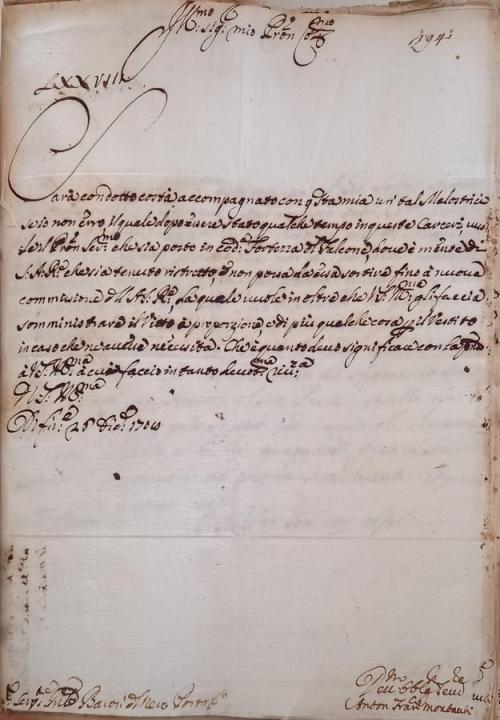 Ill.mo Sig.r mio P.ron Col.mo
294
LXXVIII
Sarà condotto costà accompagnato con q.sta mia un tal Melosticio
se io non erro, il quale dopo essere stato qualche tempo in queste Carceri, vuo
le il P.ron Ser.mo che sia posto in cod.a Fortezza di Falcone, dove è mente di
S. A. R.e che sia tenuto ristretto, e non possa da essa sortire fino à nuova
commissione dell'A. S. R.e, la quale vuole inoltre che V. S. Ill.ma gli faccia
somministrare il Vitto à proporzione, e di più qualche cosa per il Vestito
in caso che ne avesse necessità. Che è quanto devo significare con la p.nte
à V. S. Ill.ma à cui faccio in tanto devot.ma riv.za
Di V. S. Ill.ma
Di Fir.e 26 Dic.e 1700
Dev.mo Obblig.mo Serv.
Anton Fran.co Montauti